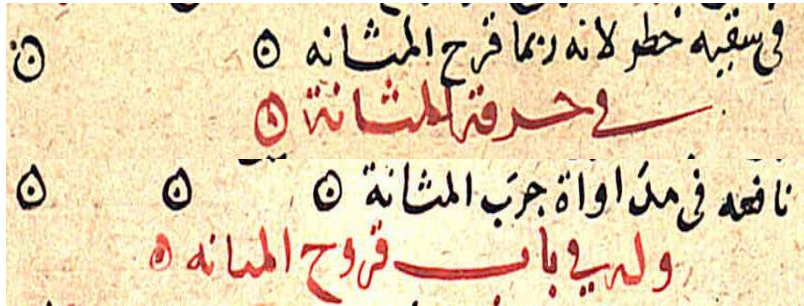 فى سقيه خطر لانه ربما قرح المثانه
في حرقة المثانة
نافعه فى مداواة جرب المثانة
وله في باب قروح المثانه